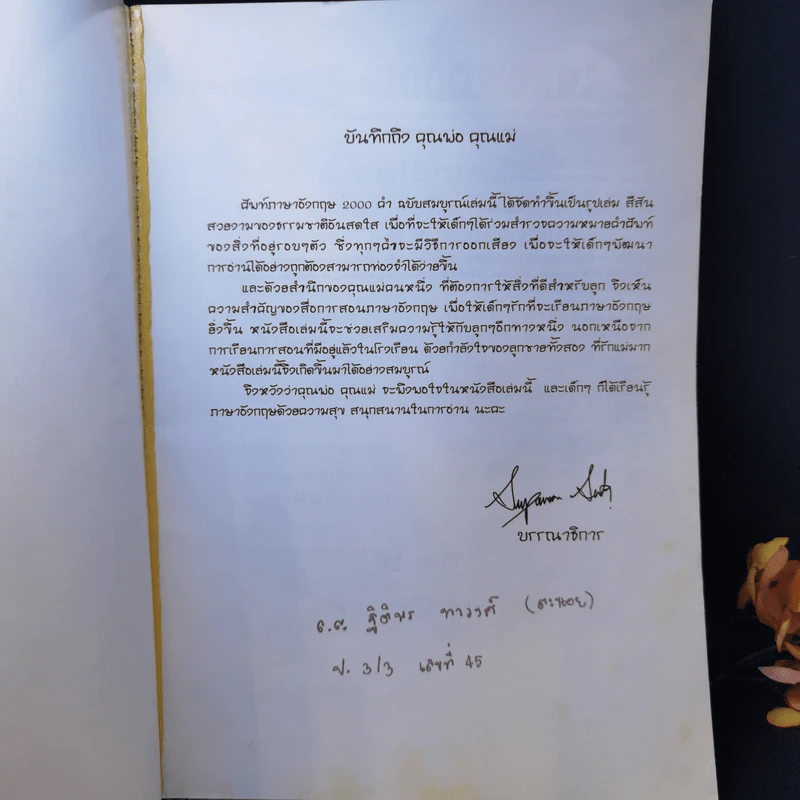 บันทึกถึง คุณพ่อ คุณแม่
ศัพท์ภาษาอังกฤษ 2000 คำ ฉบับสมบูรณ์เล่มนี้ ได้จัดทำขึ้นเป็นรูปเล่ม สีสัน
สวยงามของธรรมชาติอันสดใส เพื่อที่จะให้เด็กๆได้ร่วมสำรวจความหมายคำศัพท์
ของสิ่งที่อยู่รอบๆตัว ซึ่งทุกๆคำจะมีวิธีการออกเสียง เพื่อจะให้เด็กๆพัฒนา
การอ่านได้อย่างถูกต้องสามารถท่องจำได้ง่ายขึ้น
และด้วยสำนึกของคุณแม่คนหนึ่ง ที่ต้องการให้สิ่งที่ดีสำหรับลูก จึงเห็น
ความสำคัญของสื่อการสอนภาษาอังกฤษ เพื่อให้เด็กๆรักที่จะเรียนภาษาอังกฤษ
ยิ่งขึ้น หนังสือเล่มนี้จะช่วยเสริมความรู้ให้กับลูกๆอีกทางหนึ่ง นอกเหนือจาก
การเรียนการสอนที่มีอยู่แล้วในโรงเรียน ด้วยกำลังใจของลูกชายทั้งสอง ที่รักแม่มาก
หนังสือเล่มนี้จึงเกิดขึ้นมาได้อย่างสมบูรณ์
จึงหวังว่าคุณพ่อ คุณแม่ จะพึงพอใจในหนังสือเล่มนี้ และเด็กๆ ก็ได้เรียนรู้
ภาษาอังกฤษด้วยความสุข สนุกสนานในการอ่าน นะคะ
บรรณาธิการ
ป. 3/3 เลขที่ 45